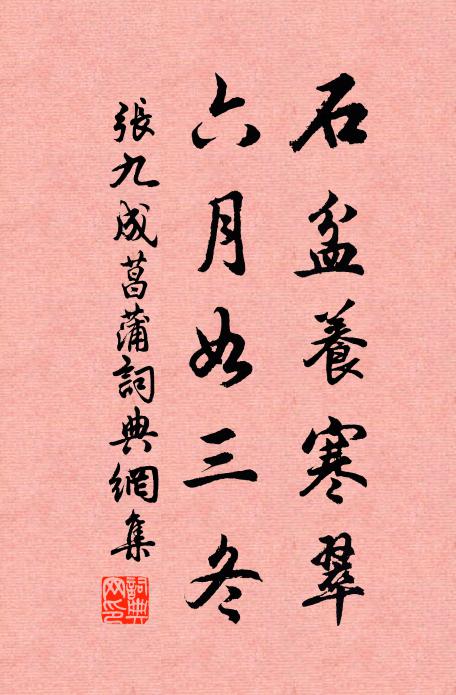 石盆養寒翠
六月如三冬
張九成菖蒲詞典網集
詞典網印